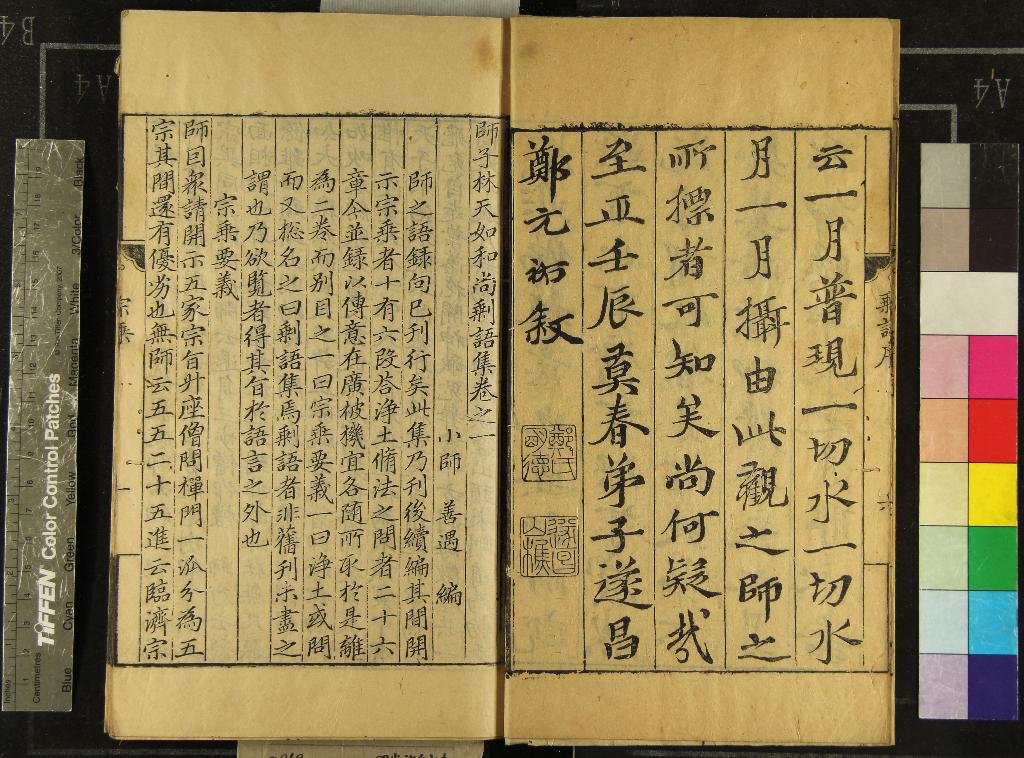 云一月普現一切水一切水
月一月攝由此觀之師之
所摽者可知矣尚何疑哉
至正壬辰莫春弟子遂昌
鄭元祐叙
鄭氏
明德
遂昌
山樵
師子林天如和尚剩語集卷之一
小師 善遇 編
師之語録向已刊行矣此集乃刊後續編其間開
示宗乘者十有六段荅淨土脩法之問者二十六
章仝並録以傳意在廣被機宜各随所取於是離
為二卷而别目之一曰宗乘要義一曰浄土或問
而又揔名之曰剩語集焉剩語者非舊刊未盡之
謂也乃欲覽者得其旨於語言之外也
宗乘要義
師因衆請開示五家宗旨升座僧問禪門一派分為五
宗其間還有優劣也無師云五五二十五進云臨濟宗
宗乘
一
剩語序
六
TIFFEN Color Control Patches
© The Tiffen Company, 2007
Inches
Centimetres
Blue
Cyan
Green
Yellow
Red
Magenta
White
3/Color
Black
B4
A4
A4